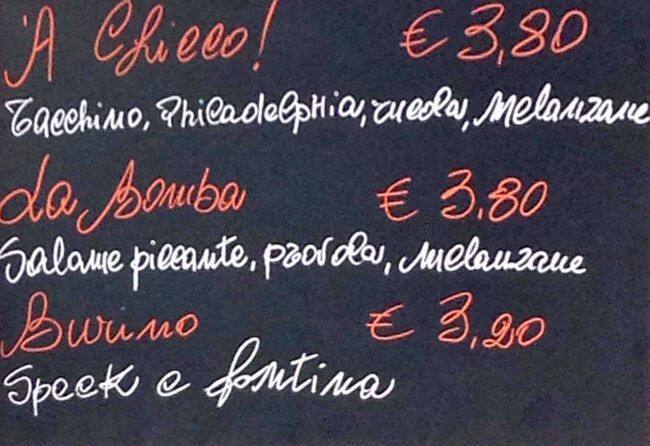 'A Chicco! € 3,80
Tacchino, Philadelphia, rucola, Melanzane
La Bomba € 3,80
Salame piccante, provola, Melanzane
Burino € 3,20
Speck e fontina